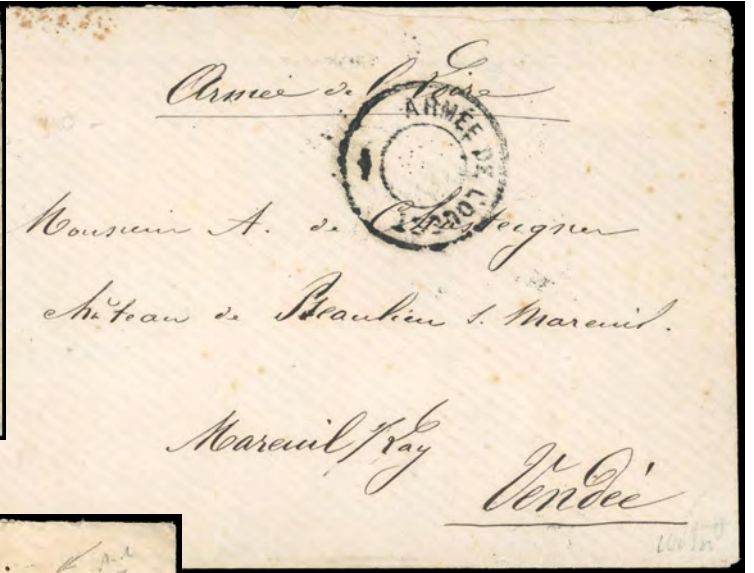 Armée de l'Loire
ARMÉE DE L'OUEST
Monsieur A. de Chasteigner
château de Beaulieu s. Mareuil.
Mareuil s/Lay
Vendée